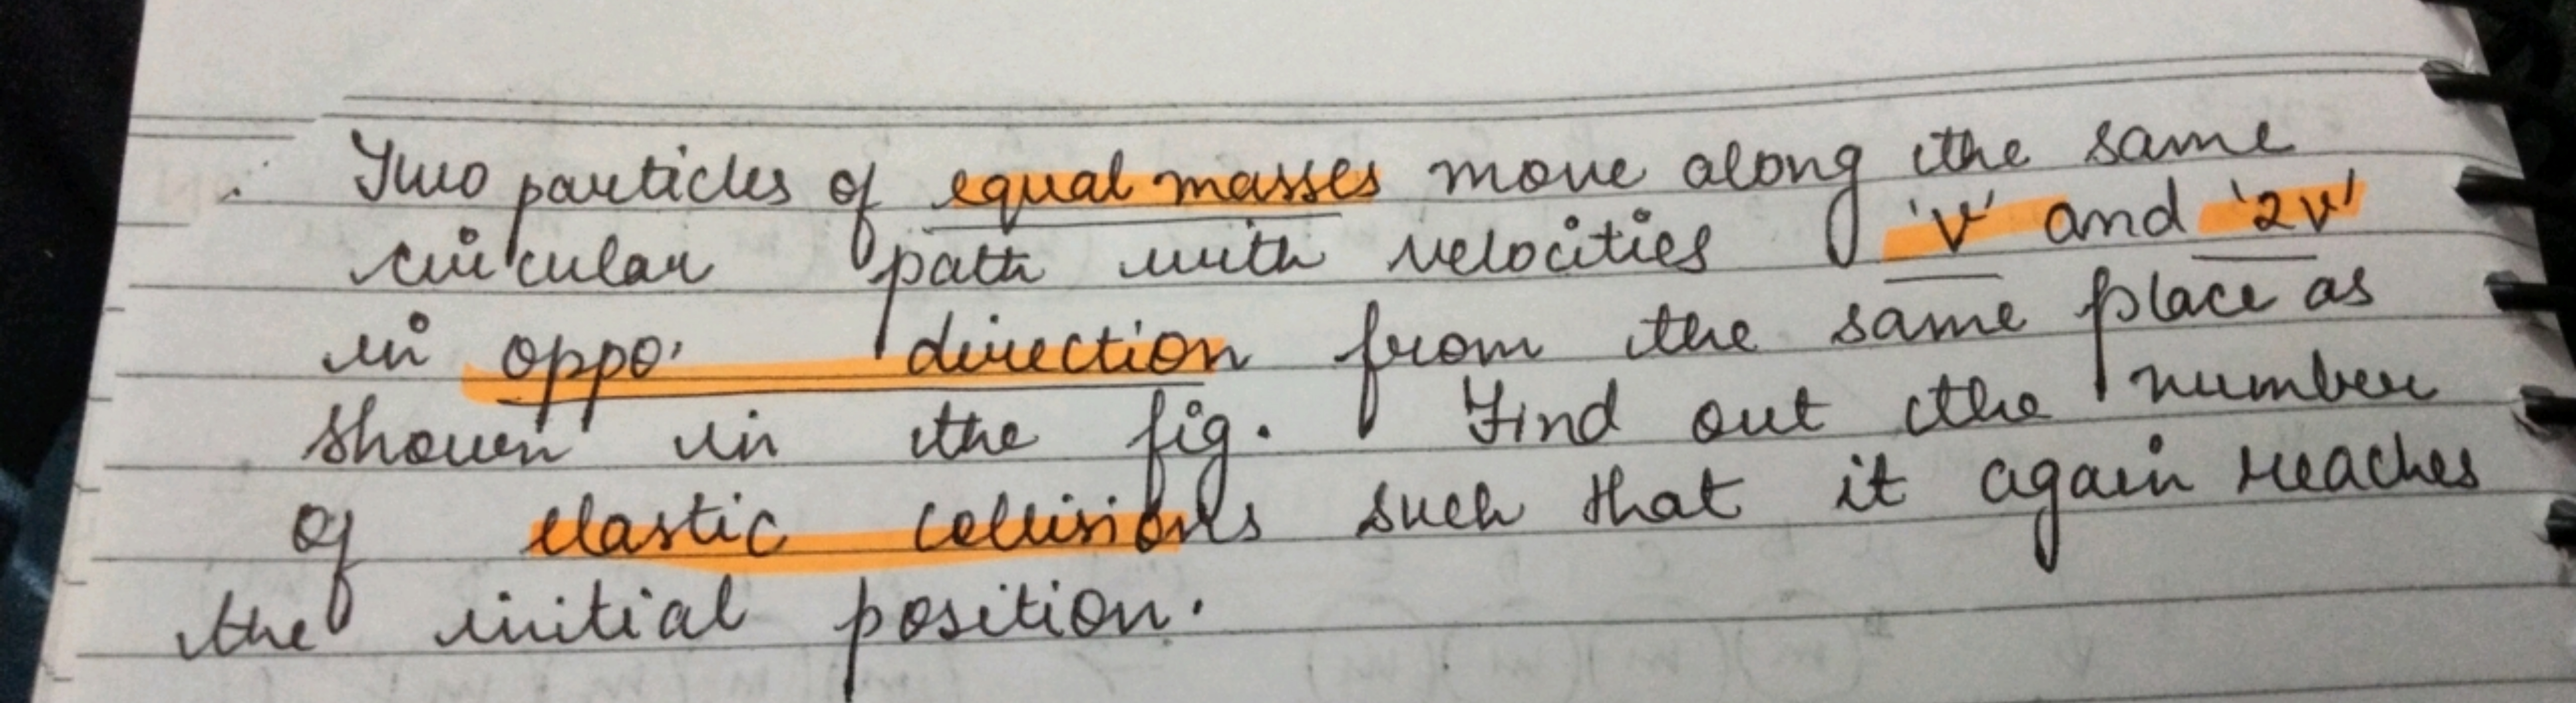 Two particles of equal masses move along the same
circular path with velocities 'v' and '2v'
in oppo. direction from the same place as
shown in the fig. Find out the number
of elastic collisions such that it again reaches
the initial position.